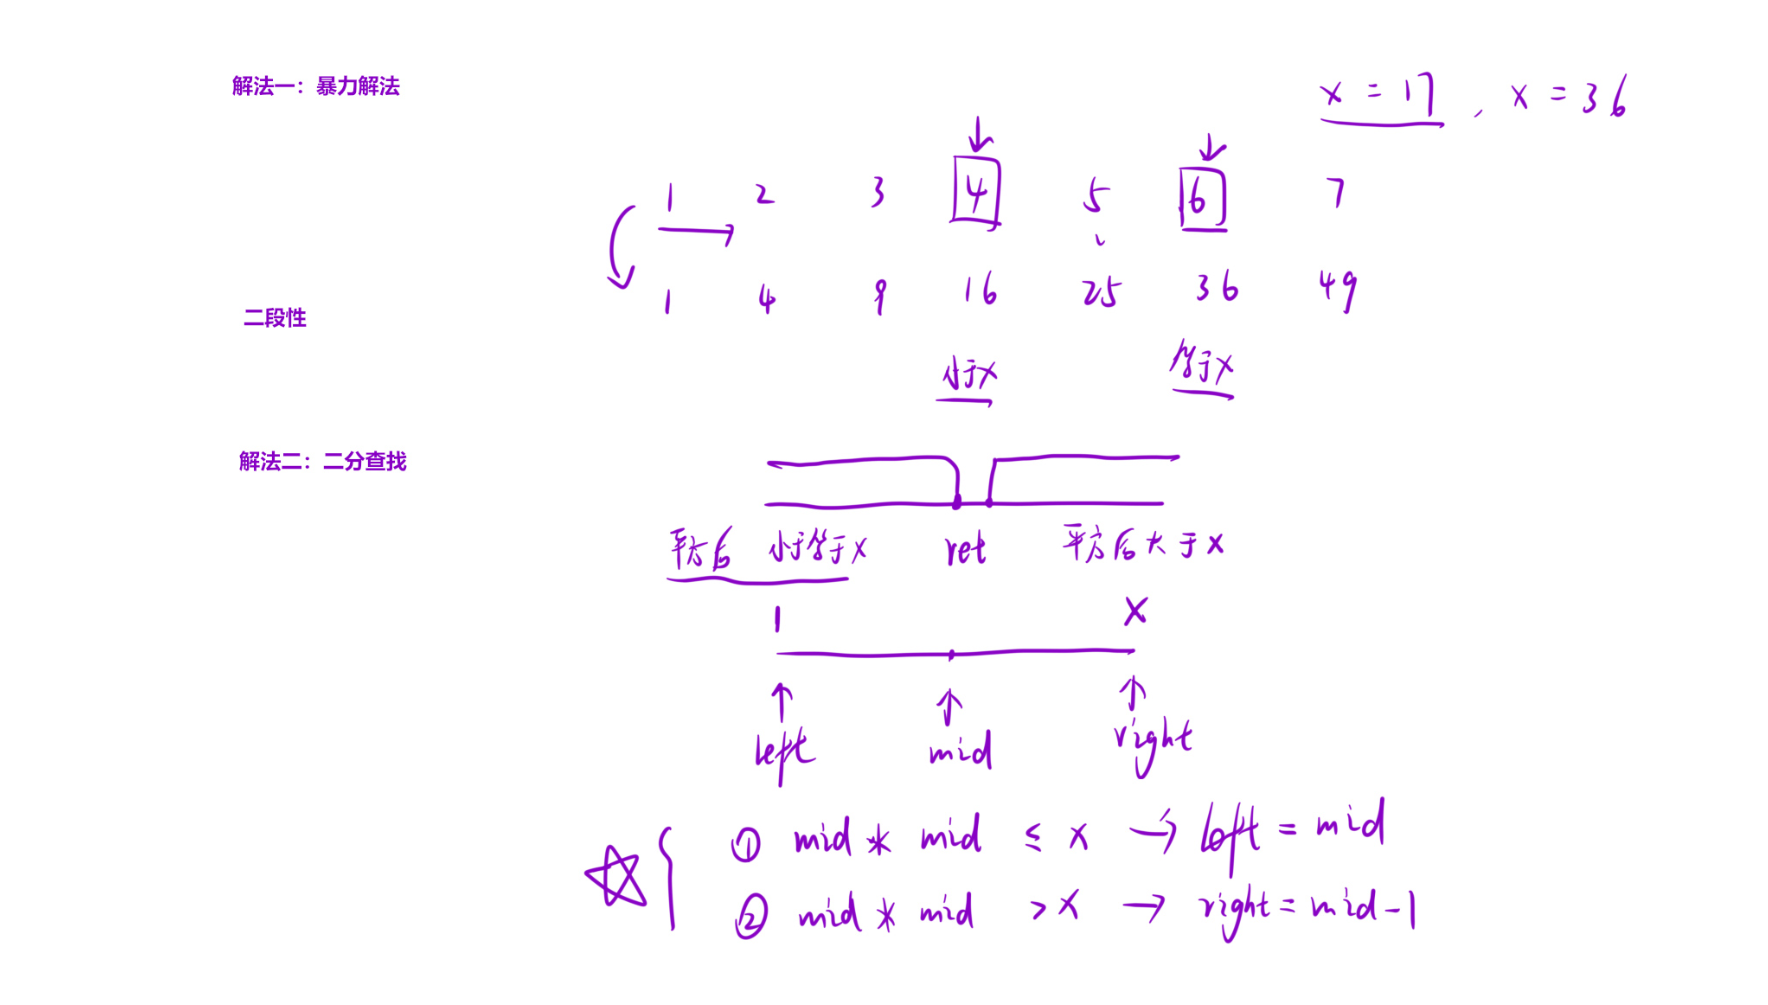 解法一：暴力解法
x = 17 , x = 36
1 2 3 4 5 6 7
1 4 9 16 25 36 49
二段性
小于x 等于x
解法二：二分查找
平方后 小于等于x ret 平方后大于x
1 x
left mid right
① mid * mid ≤ x → left = mid
② mid * mid > x → right = mid-1